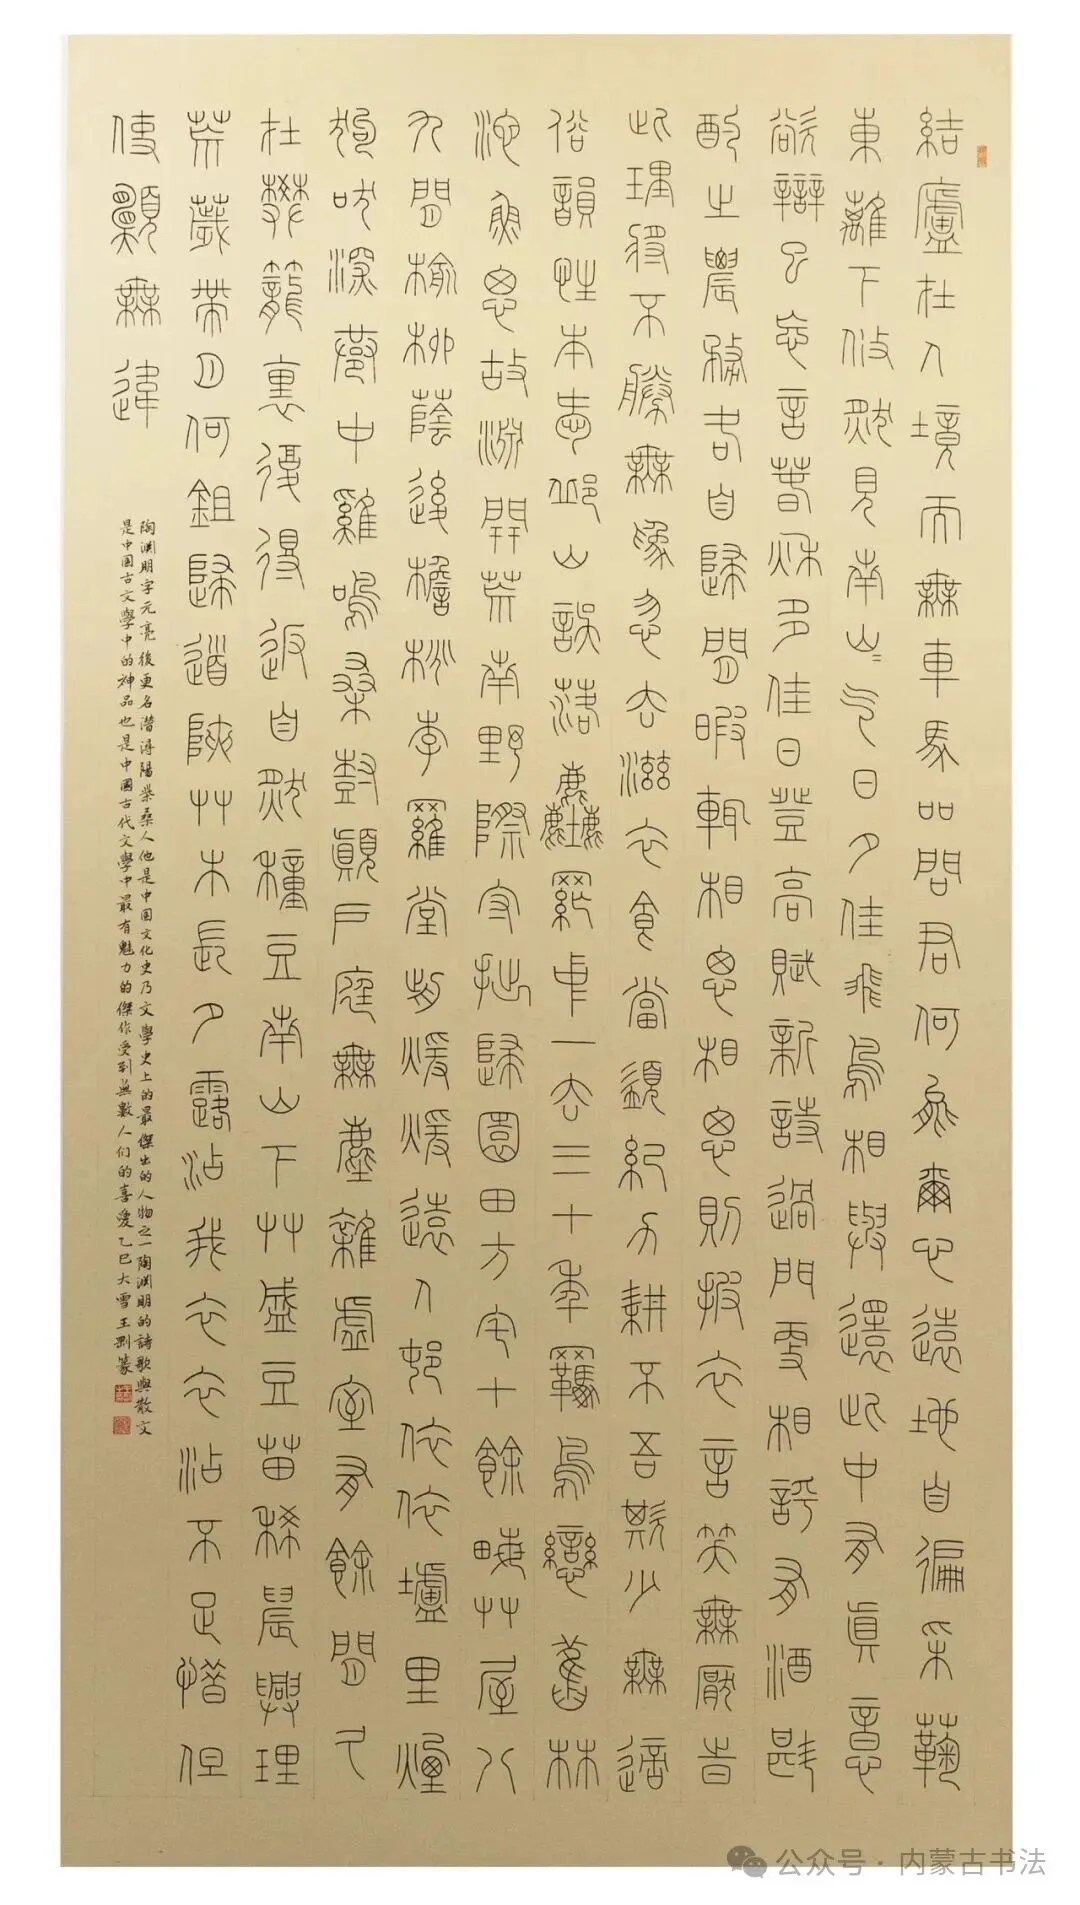 結廬在人境而無車馬喧問君何能爾心遠地自偏采鞠
東籬下攸然見南山=气日夕佳飛鳥相與還此中有真意
欲辯已忘言春秋多佳日登高賦新詩過門更相呼有酒斟
酌之農務各自歸閒暇輒相思相思則披衣言笑無厭時
此理將不勝無為忽去滋衣食當須紀力耕不吾欺少無適
俗韻性本愛邱山誤落塵網中一去三十年羈鳥戀舊林
池魚思故淵開荒南野際守拙歸園田方宅十餘畝艸屋八
九間榆柳蔭後檐桃李羅堂前煖煖遠人邨依依壚里煙
狗吠深巷中雞鳴桑樹顛戶庭無塵雜虛室有餘閒久
在樊籠裏復得返自然種豆南山下艸盛豆苗稀晨興理
荒薉帶月何鉏歸道陝艸木長夕露沾我衣衣沾不足惜但
使願無違
陶渊明字元亮後更名潛潯陽柴桑人他是中国文化史乃文學史上的最傑出的人物之一陶渊明的詩歌與散文
是中國古文學中的神品也是中國古代文學中最有魅力的傑作受到無數人们的喜愛乙巳大雪王剛篆
公众号·内蒙古书法